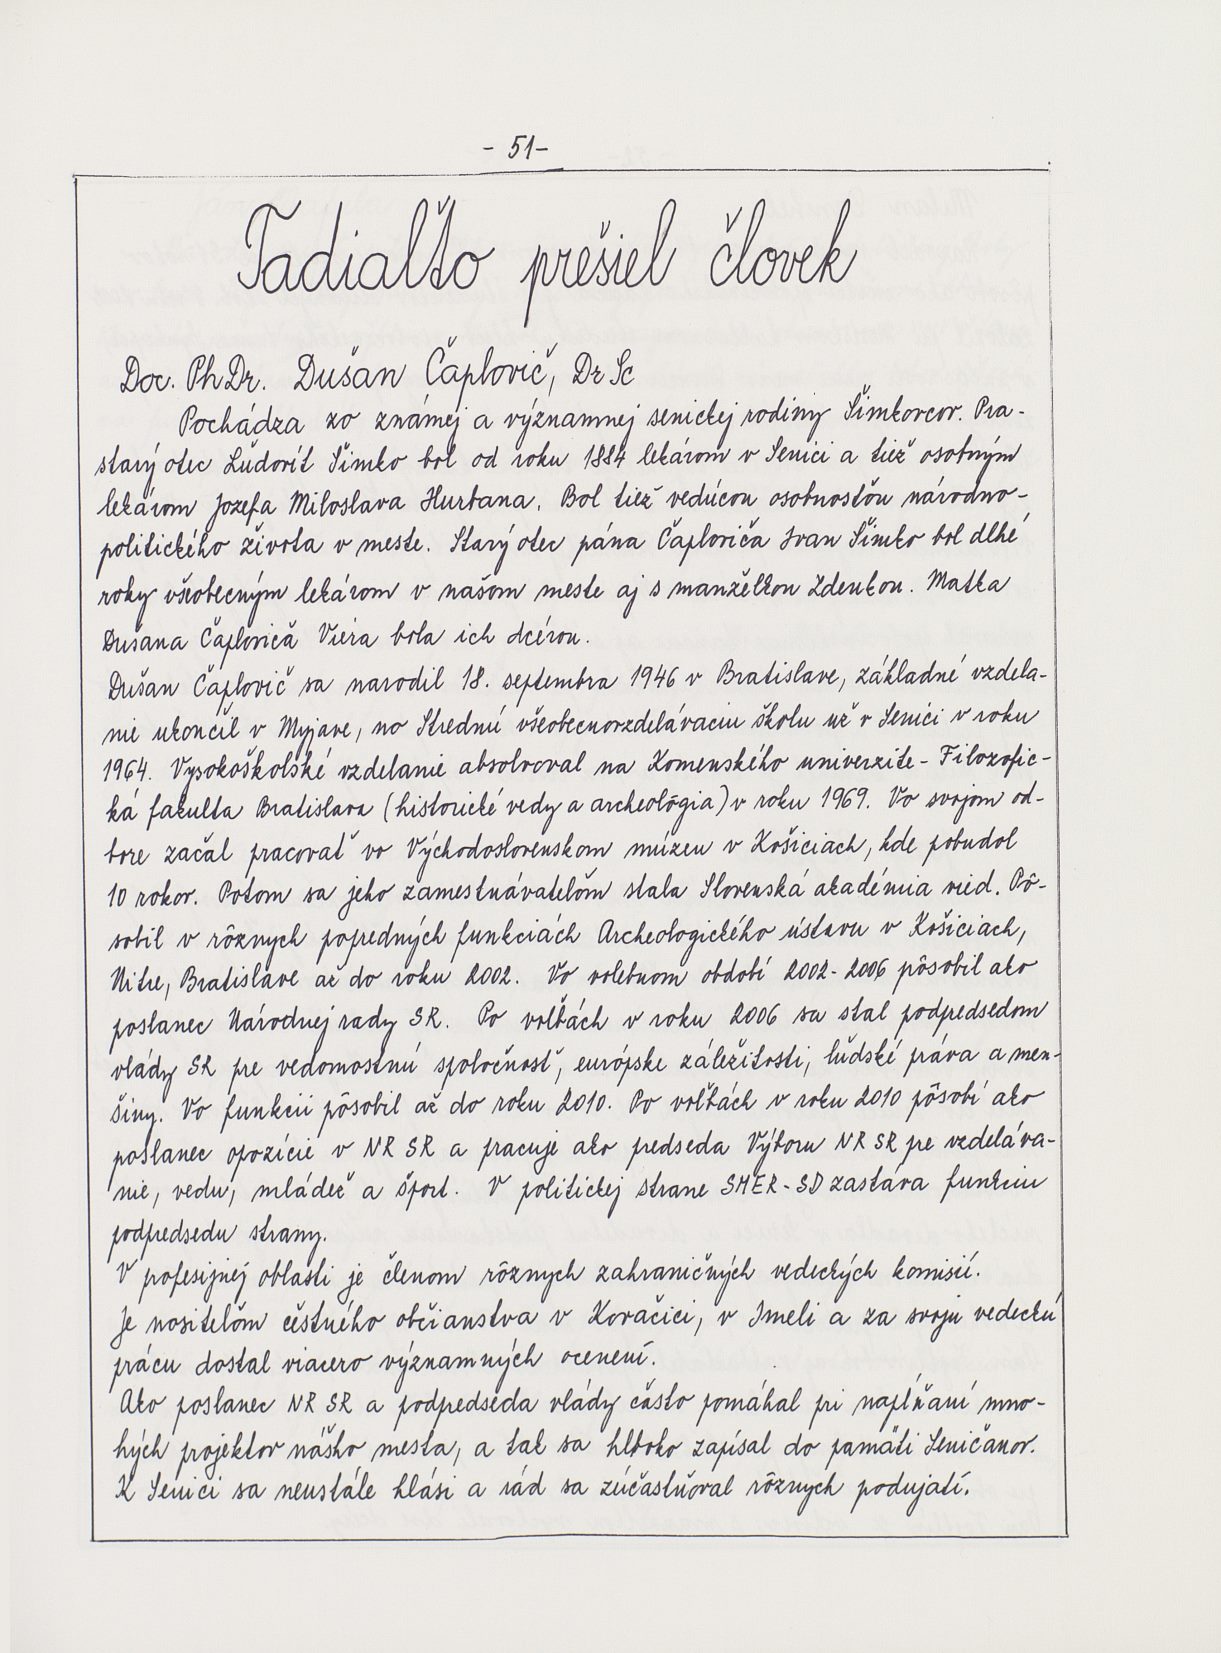 - 51-
Tadiaľto prešiel človek
Doc. PhDr. Dušan Čaplovič, DrSc
Pochádza zo známej a významnej senickej rodiny Šimkovcov. Pra-
starý otec Ľudovít Šimko bol od roku 1884 lekárom v Senici a tiež osobným
lekárom Jozefa Miloslava Hurbana. Bol tiež vedúcou osobnosťou národno-
politického života v meste. Starý otec pána Čaploviča Ivan Šimko bol dlhé
roky všeobecným lekárom v našom meste aj s manželkou Zdenkou. Matka
Dušana Čaploviča Viera bola ich dcérou.
Dušan Čaplovič sa narodil 18. septembra 1946 v Bratislave, základné vzdela-
nie ukončil v Myjave, no Strednú všeobecnovzdelávaciu školu už v Senici v roku
1964. Vysokoškolské vzdelanie absolvoval na Komenského univerzite - Filozofic-
ká fakulta Bratislava (historické vedy a archeológia) v roku 1969. Vo svojom od-
bore začal pracovať vo Východoslovenskom múzeu v Košiciach, kde pobudol
10 rokov. Potom sa jeho zamestnávateľom stala Slovenská akadémia vied. Pô-
sobil v rôznych popredných funkciách Archeologického ústavu v Košiciach,
Nitre, Bratislave až do roku 2002. Vo volebnom období 2002-2006 pôsobil ako
poslanec Národnej rady SR. Po voľbách v roku 2006 sa stal podpredsedom
vlády SR pre vedomostnú spoločnosť, európske záležitosti, ľudské práva a men-
šiny. Vo funkcii pôsobil až do roku 2010. Po voľbách v roku 2010 pôsobí ako
poslanec opozície v NR SR a pracuje ako predseda Výboru NR SR pre vzdeláva-
nie, vedu, mládež a šport. V politickej strane SMER-SD zastáva funkciu
podpredsedu strany.
V profesijnej oblasti je členom rôznych zahraničných vedeckých komisií.
Je nositeľom čestného občianstva v Kovačici, v Imeli a za svoju vedeckú
prácu dostal viacero významných ocenení.
Ako poslanec NR SR a podpredseda vlády často pomáhal pri napĺňaní mno-
hých projektov nášho mesta, a tak sa hlboko zapísal do pamäti Seničanov.
K Senici sa neustále hlási a rád sa zúčastňoval rôznych podujatí.